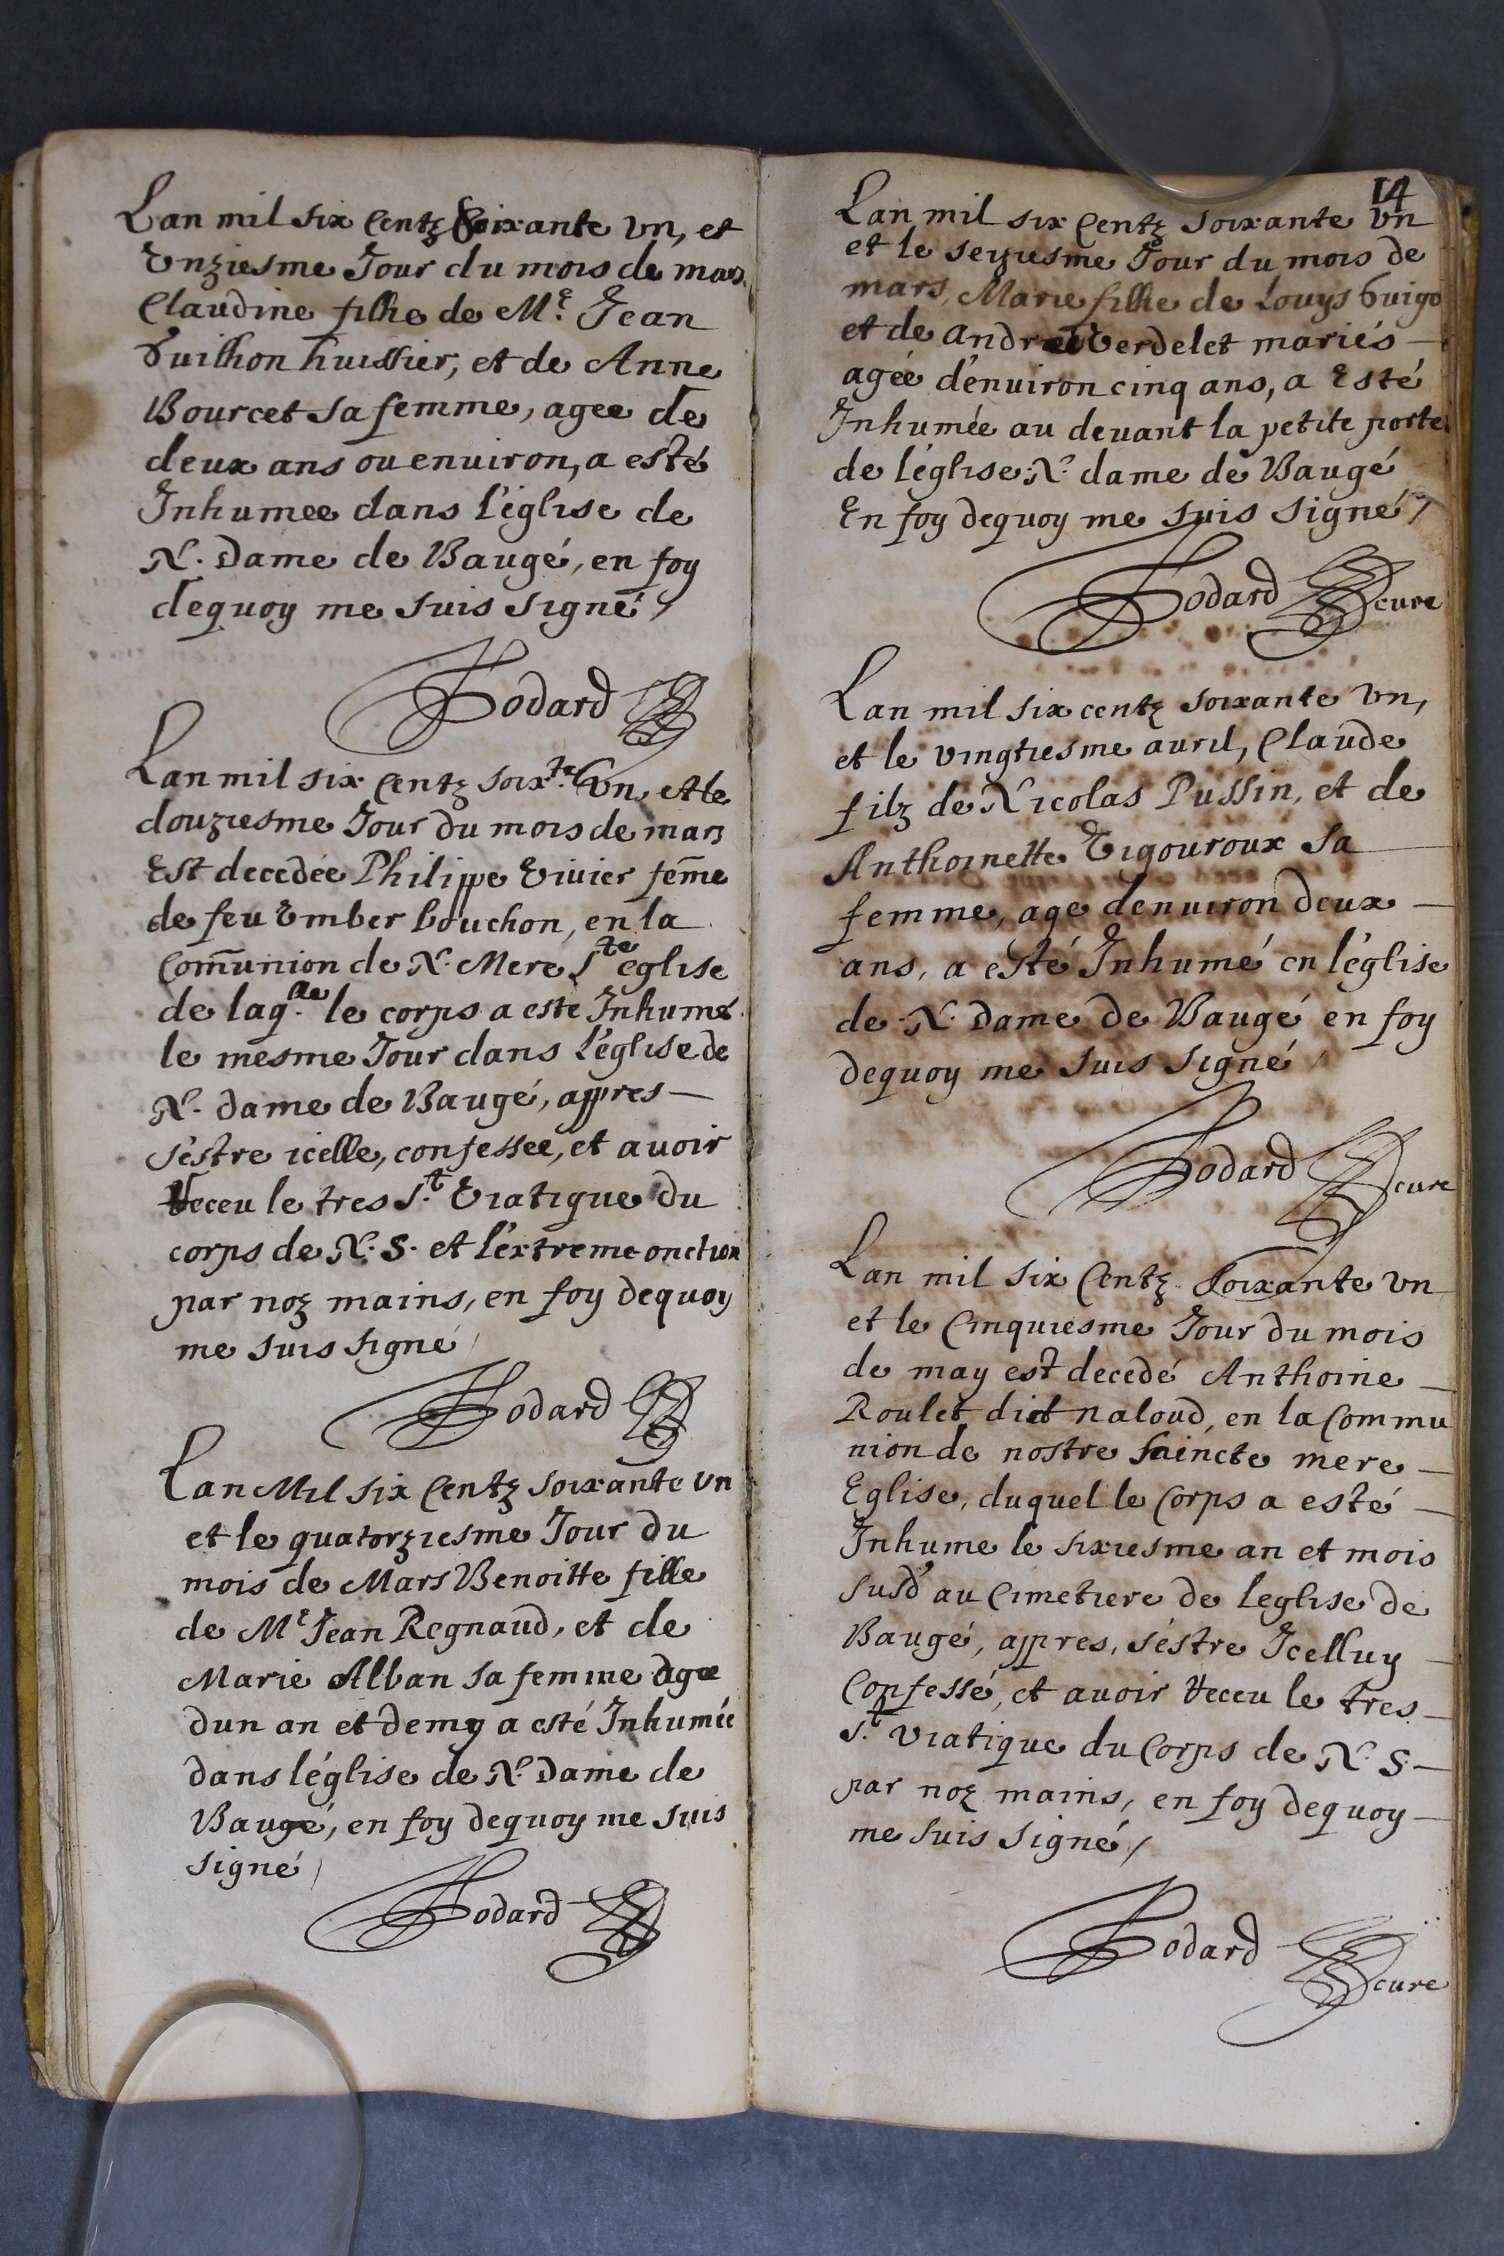 Lan mil six Centz Soixante vn, et
Vnziesme Jour du mois de mars
Claudine fille de Me Jean
Vuilhon huissier, et de Anne
Bourcet sa femme, agee de
deux ans ou enuiron, a esté
Inhumee dans l'église de
N. Dame de Baugé, en foy
dequoy me suis signé /
Godard
Lan mil six Centz soix.te vn, et le
douziesme Jour du mois de mars
Est decedée Philippe Viuier feme
de feu Vmber bouchon, en la
Comunion de N. Mere S.te eglise
de laq.lle le corps a esté Inhumé
le mesme Jour dans L'église de
N. dame de Baugé, appres —
s'estre icelle, confessee, et auoir
Receu le tres S.t Viatique du
corps de N. S. et l'extreme-onction
par noz mains, en foy dequoy
me suis signé /
Godard
Lan Mil six Centz soixante vn
et le quatorziesme Jour du
mois de Mars Benoitte fille
de Me Jean Regnaud, et de
Marie Alban sa femme agee
dun an et demy a esté Inhumée
dans l'église de N. Dame de
Baugé, en foy dequoy me suis
signé /
Godard
14
Lan mil six Centz soixante vn
et le seziesme Jour du mois de
mars, Marie fille de Louys Guigo
et de Andrée Verdelet mariés —
agée d'enuiron cinq ans, a Esté
Inhumée au deuant la petite porte
de l'église N. dame de Baugé
En foy dequoy me suis signé /
Godard cure
Lan mil six centz soixante vn,
et le vingtiesme auril, Claude
filz de Nicolas Pussin, et de
Anthoinette Vigouroux sa —
femme, age denuiron deux —
ans, a esté Inhumé en l'église
de N. Dame de Baugé en foy
dequoy me suis signé /
Godard cure
Lan mil six Centz Soixante vn
et le Cinquiesme Jour du mois
de may est decedé Anthoine —
Roulet dict naloud, en la Commu
nion de nostre saincte mere —
Eglise, duquel le Corps a esté —
Inhume le sixiesme an et mois
susd au Cimetiere de leglise de
Baugé, appres, s'estre Icelluy —
Confessé, et auoir Receu le tres —
S.t Viatique du Corps de N. S. —
par noz mains, en foy dequoy —
me suis signé /
Godard cure